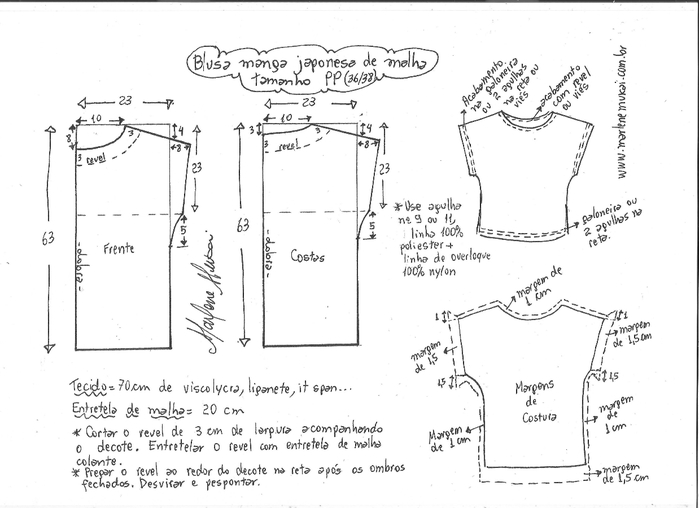 Blusa manga japonesa de malha
tamanho PP (36/38)
23
10
8
3
revel
3
4
8
23
63
5
dobra
Frente
Marlene Mukai
23
10
3
3
revel
3
4
8
23
63
5
dobra
Costas
Acabamento
na galoneira
ou 2 agulhas
na reta ou
viés
acabamento
com revel
ou viés
www.marlenemukai.com.br
galoneira ou
2 agulhas na
reta.
* Use agulha
nº 9 ou 11,
linha 100%
poliester +
linha de overloque
100% nylon
margem de
1 cm
1
1
margem
de
1,5
margem
de 1,5cm
1,5
1,5
Margens
de
Costura
Margem
de 1cm
margem
de
1cm
margem
de 1,5cm
Tecido = 70cm de viscolycra, liganete, it span...
Entretela de malha = 20 cm
* Cortar o revel de 3 cm de largura acompanhando
o decote. Entretelar o revel com entretela de malha
colante.
* Pregar o revel ao redor do decote na reta após os ombros
fechados. Desvirar e pespontar.